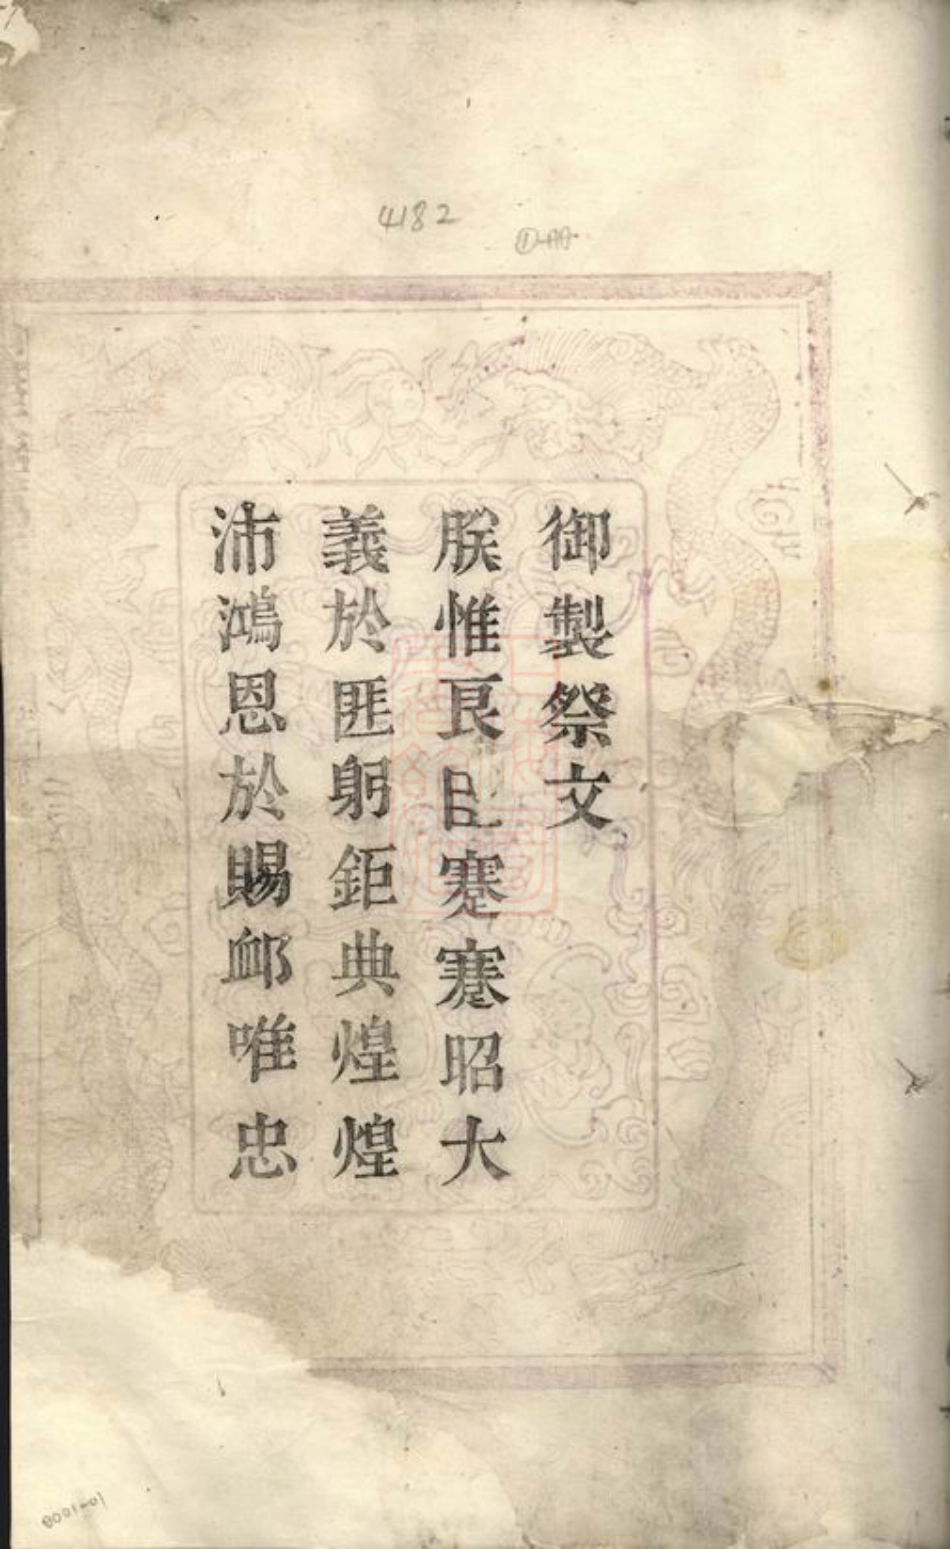 4182
御製祭文
朕惟良臣蹇蹇昭大
義於匪躬鉅典煌煌
沛鴻恩於賜䘏唯忠